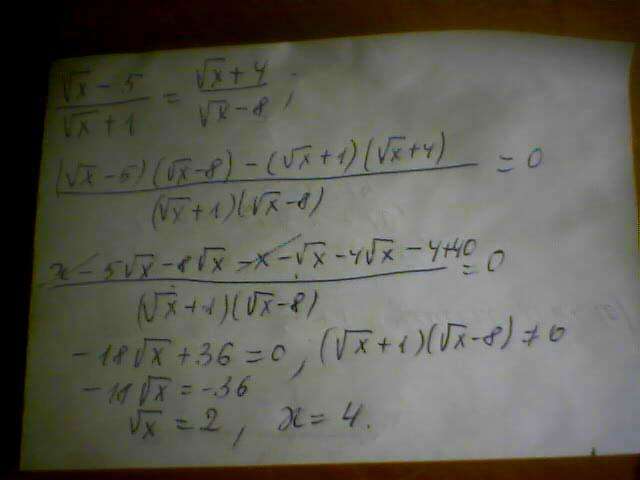 (√x - 5)/(√x + 1) = (√x + 4)/(√x - 8);
((√x - 5)(√x - 8) - (√x + 1)(√x + 4))/((√x + 1)(√x - 8)) = 0
(x - 5√x - 8√x - x - √x - 4√x - 4 + 40)/((√x + 1)(√x - 8)) = 0
-18√x + 36 = 0, (√x + 1)(√x - 8) ≠ 0
-18√x = -36
√x = 2, x = 4.